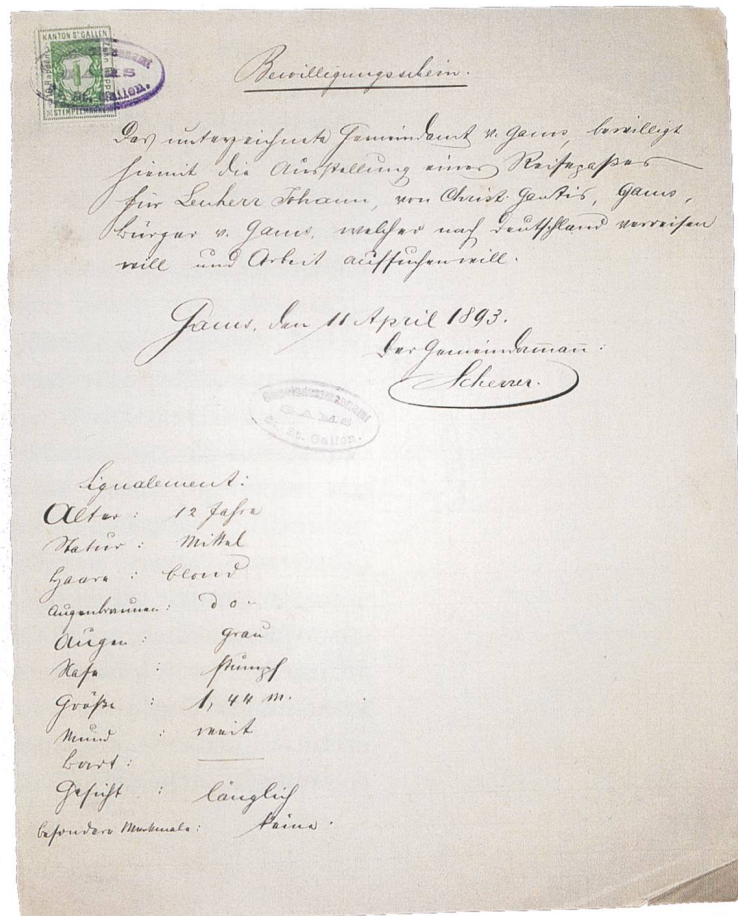 KANTON ST GALLEN
STEMPELMARKE
GAMS
Kt. St. Gallen.
Bewilligungsschein.
Das unterzeichnete Gemeindamt v. Gams, bewilligt
hiemit die Ausstellung eines Reisepaßes
für Lenherr Johann, von Christ. Gantis, Gams,
Bürger v. Gams, welcher nach Deutschland verreisen
will und Arbeit aufsuchen will.
Gams, den 11 April 1893.
Der Gemeindamann:
Scherrer.
Gemeindeammannamt
GAMS
Kt. St. Gallen.
Signalement:
Alter: 12 Jahre
Statur: Mittel
Haare: blond
Augenbraunen: do
Augen: grau
Nase: stumpf
Größe: 1,44 m.
Mund: weit
Bart: —
Gesicht: länglich
besondere Merkmale: keine.